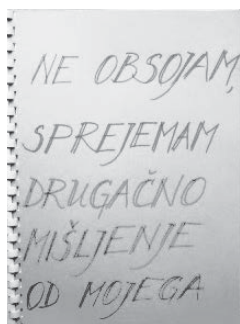 NE OBSOJAM,
SPREJEMAM
DRUGAČNO
MIŠLJENJE
OD MOJEGA